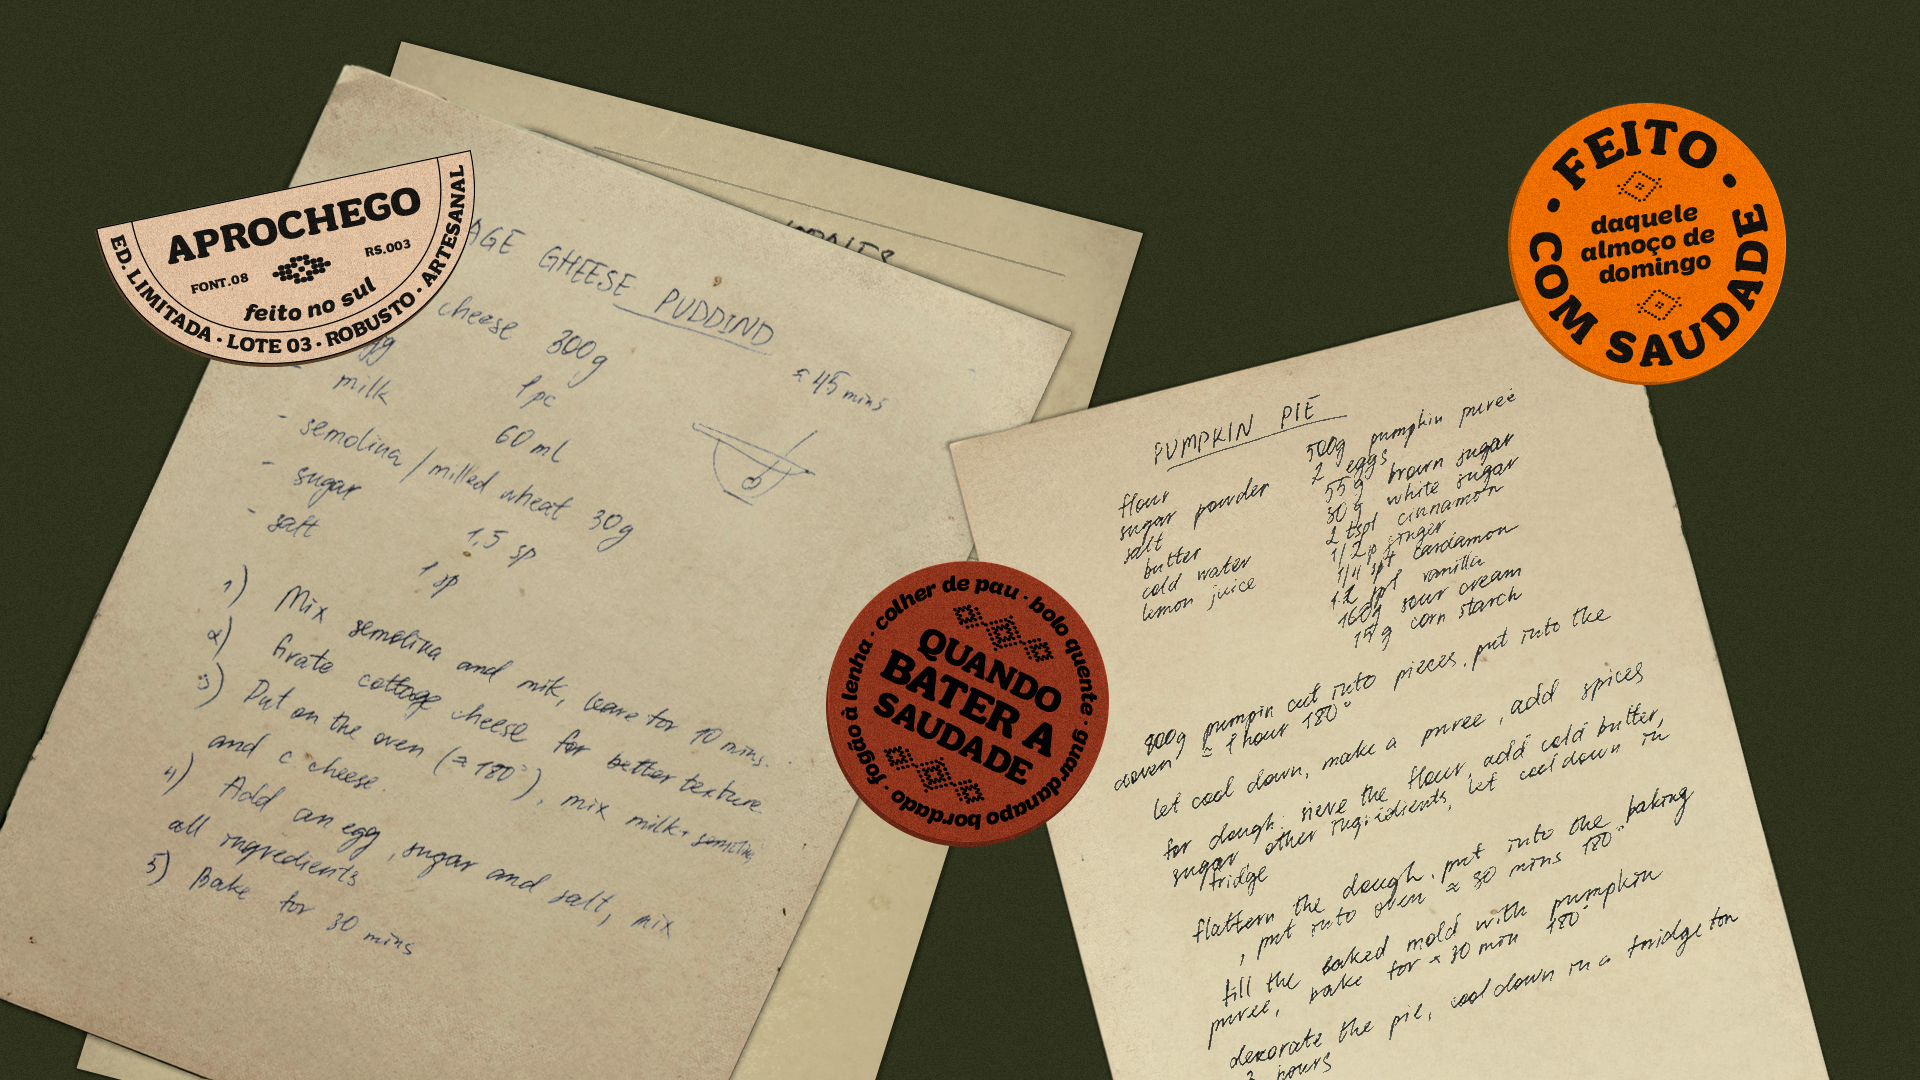 APROCHEGO
FONT.08
RS.003
feito no sul
ED. LIMITADA · LOTE 03 · ROBUSTO · ARTESANAL
AGE GHEESE PUDDIND
cheese 300g
egg 1 pc
milk 60 ml
- semolina / milled wheat 30g
- sugar 1,5 sp
- salt 1 sp
≈ 45 mins
1) Mix semolina and milk, leave for 10 mins.
2) Grate cottage cheese for better texture.
3) Put on the oven (≈ 180°), mix milk + semolina
and c cheese.
4) Add an egg, sugar and salt, mix
all ingredients
5) Bake for 30 mins
QUANDO
BATER A
SAUDADE
fogão à lenha · colher de pau · bolo quente · guardanapo bordado ·
FEITO
COM SAUDADE
daquele
almoço de
domingo
PUMPKIN PIE
flour
sugar powder
salt
butter
cold water
lemon juice
500g pumpkin puree
2 eggs
55 g brown sugar
30 g white sugar
2 tspt cinnamon
1/2 p ginger
1/4 spt cardamon
vanilla
160g sour cream
15 g corn starch
800g pumpin cut into pieces, put into the
oven ≈ 1 hour 180°
let cool down, make a puree, add spices
for dough: sieve the flour, add cold butter,
sugar other ingridients, let cool down in
fridge
flattern the dough, put into the baking
, put into oven ≈ 30 mins 180°
fill the baked mold with pumpkin
puree, bake for ≈ 30 min 180°
decorate the pie, cool down in a fridge for
hours